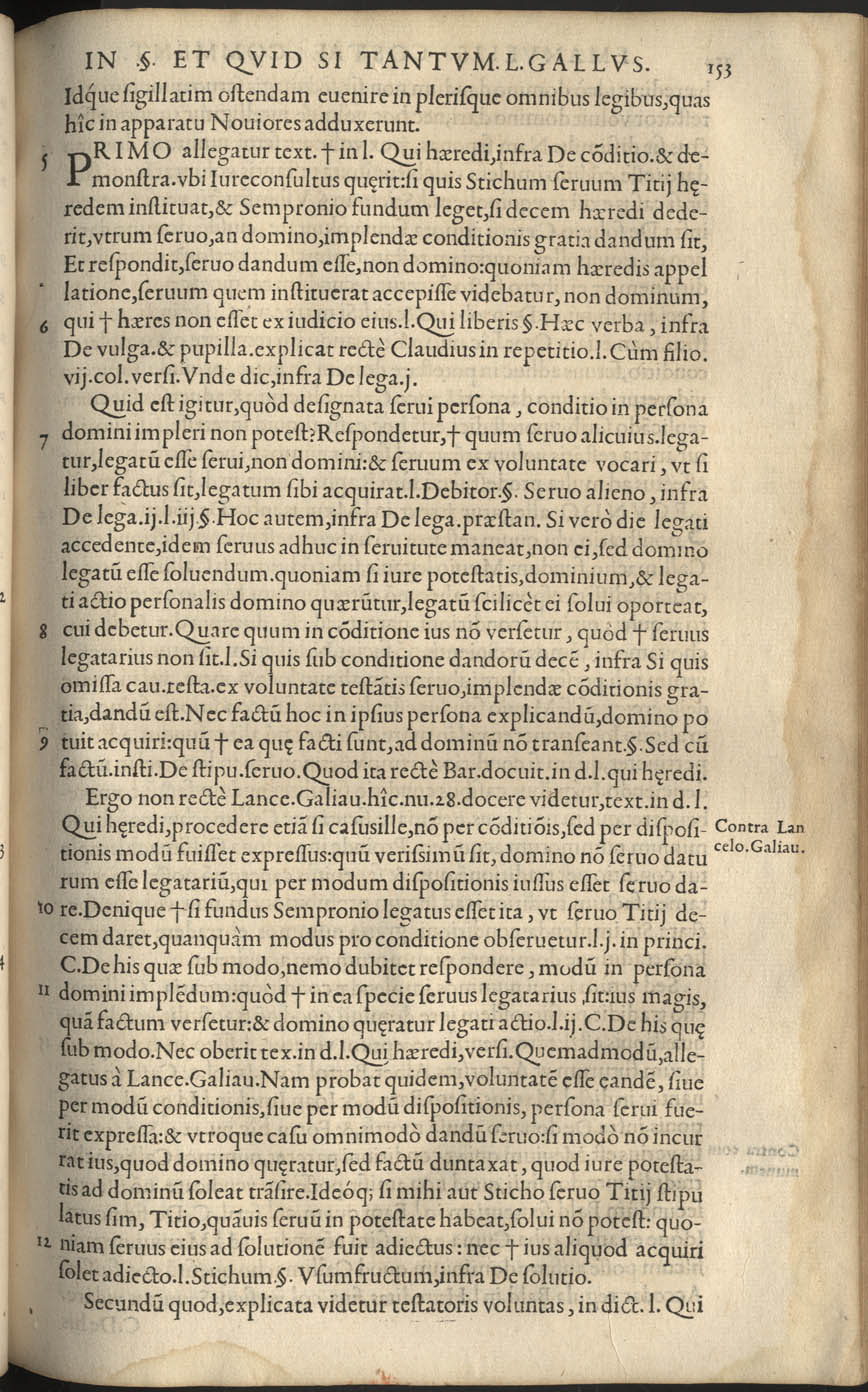 IN .§. ET QVID SI TANTVM. L. GALLVS. 153
Idq́ue ſigillatim oſtendam euenire in pleriſque omnibus legibus, quas
hîc in apparatu Nouiores adduxerunt.
5 PRIMO allegatur text. † in l. Qui hæredi, infra De cõditio. & de-
monſtra. vbi Iureconſultus quęrit: ſi quis Stichum ſeruum Titij hę-
redem inſtituat, & Sempronio fundum leget, ſi decem hæredi dede-
rit, vtrum ſeruo, an domino, implendæ conditionis gratia dandum ſit,
Et reſpondit, ſeruo dandum eſſe, non domino: quoniam hæredis appel
latione, ſeruum quem inſtituerat accepiſſe videbatur, non dominum,
6 qui † hæres non eſſet ex iudicio eius. l. Qui liberis §. Hæc verba, infra
De vulga. & pupilla. explicat rectè Claudius in repetitio. l. Cùm filio.
vij. col. verſi. Vnde dic, infra De lega. j.
Quid eſt igitur, quòd deſignata ſerui perſona, conditio in perſona
7 domini impleri non poteſt? Reſpondetur, † quum ſeruo alicuius. lega-
tur, legatũ eſſe ſerui, non domini: & ſeruum ex voluntate vocari, vt ſi
liber factus ſit, legatum ſibi acquirat. l. Debitor. §. Seruo alieno, infra
De lega. ij. l. iij. §. Hoc autem, infra De lega. præſtan. Si verò die legati
accedente, idem ſeruus adhuc in ſeruitute maneat, non ei, ſed domino
legatũ eſſe ſoluendum. quoniam ſi iure poteſtatis, dominium, & lega-
ti actio perſonalis domino quærũtur, legatũ ſcilicèt ei ſolui oporteat,
8 cui debetur. Quare quum in cõditione ius nõ verſetur, quòd † ſeruus
legatarius non ſit. l. Si quis ſub conditione dandorũ decẽ, infra Si quis
omiſſa cau. teſta. ex voluntate teſtãtis ſeruo, implendæ cõditionis gra-
tia, dandũ eſt. Nec factũ hoc in ipſius perſona explicandũ, domino po
9 tuit acquiri: quũ † ea quę facti ſunt, ad dominũ nõ tranſeant. §. Sed cũ
factũ. inſti. De ſtipu. ſeruo. Quod ita rectè Bar. docuit. in d. l. qui hęredi.
Ergo non rectè Lance. Galiau. hîc. nu. 28. docere videtur, text. in d. l.
Qui hęredi, procedere etiã ſi caſus ille, nõ per cõditiõis, ſed per diſpoſi-
Contra Lan
celo. Galiau.
tionis modũ fuiſſet expreſſus: quũ veriſſimũ ſit, domino nõ ſeruo datu
rum eſſe legatariũ, qui per modum diſpoſitionis iuſſus eſſet ſeruo da-
10 re. Denique † ſi fundus Sempronio legatus eſſet ita, vt ſeruo Titij de-
cem daret, quanquàm modus pro conditione obſeruetur. l. j. in princi.
C. De his quæ ſub modo, nemo dubitet reſpondere, modũ in perſona
11 domini implẽdum: quòd † in ea ſpecie ſeruus legatarius, ſit: ius magis,
quã factum verſetur: & domino quęratur legati actio. l. ij. C. De his quę
ſub modo. Nec oberit tex. in d. l. Qui hæredi, verſi. Quemadmodũ, alle-
gatus à Lance. Galiau. Nam probat quidem, voluntatẽ eſſe eandẽ, ſiue
per modũ conditionis, ſiue per modũ diſpoſitionis, perſona ſerui fue-
rit expreſſa: & vtroque caſu omnimodò dandũ ſeruo: ſi modò nõ incur
rat ius, quod domino quęratur, ſed factũ duntaxat, quod iure poteſta-
tis ad dominũ ſoleat trãſire. Ideóq; ſi mihi aut Sticho ſeruo Titij ſtipu
latus ſim, Titio, quãuis ſeruũ in poteſtate habeat, ſolui nõ poteſt: quo-
12 niam ſeruus eius ad ſolutionẽ fuit adiectus: nec † ius aliquod acquiri
ſolet adiecto. l. Stichum §. Vſumfructum, infra De ſolutio.
Secundũ quod, explicata videtur teſtatoris voluntas, in dict. l. Qui